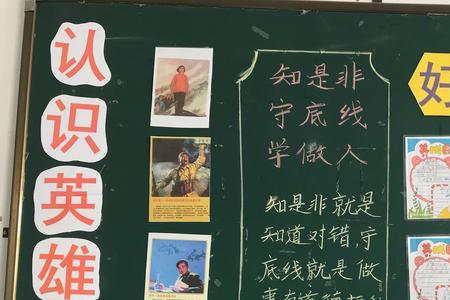 认
识
英
雄
知是非
守底线
学做人
知是非就是
知道对错,守
底线就是做
好